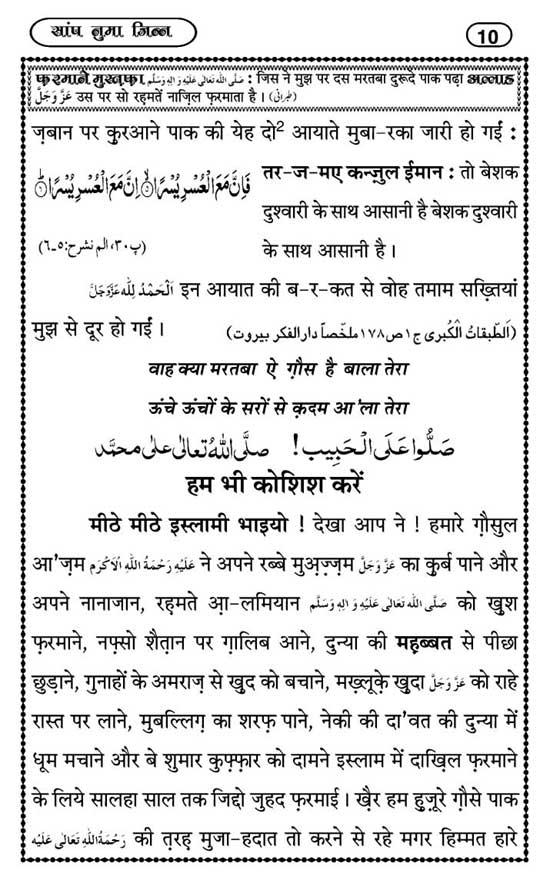 सांप नुमा जिन्न
10
फ़रमाने मुस्तफ़ा صَلَّى اللهُ تَعَالٰى عَلَيْهِ وَاٰلِهٖ وَسَلَّم : जिस ने मुझ पर दस मरतबा दुरूदे पाक पढ़ा अल्लाह
عَزَّوَجَلَّ उस पर सो रहमतें नाज़िल फ़रमाता है । (طبرانی)
ज़बान पर कुरआने पाक की येह दो2 आयाते मुबा-रका जारी हो गईं :
فَاِنَّ مَعَ الْعُسْرِ یُسْرًاۙ اِنَّ مَعَ الْعُسْرِ یُسْرًاؕ तर-ज-मए कन्ज़ुल ईमान : तो बेशक
दुश्वारी के साथ आसानी है बेशक दुश्वारी
(پ۳۰، الم نشرح:۵ـ۶) के साथ आसानी है ।
اَلْحَمْدُ لِلّٰه عَزَّوَجَلَّ इन आयात की ब-र-कत से वोह तमाम सख़्तियां
मुझ से दूर हो गईं । (اَلطَّبَقاتُ الْكُبرى ج۱ ص۱۷۸ ملخّصاً دارالفكر بيروت)
वाह क्या मरतबा ऐ ग़ौस है बाला तेरा
ऊंचे ऊंचों के सरों से क़दम आ'ला तेरा
صَلُّوا عَلَى الْحَبِيب! صلَّى اللهُ تعالٰى على محمَّد
हम भी कोशिश करें
मीठे मीठे इस्लामी भाइयो ! देखा आप ने ! हमारे ग़ौसुल
आ'ज़म عَلَيْهِ رَحْمَةُ اللهِ الْاَكْرَم ने अपने रब्बे मुअ़ज़्ज़म عَزَّوَجَلَّ का कुर्ब पाने और
अपने नानाजान, रहमते आ़-लमियान صَلَّى اللهُ تَعَالٰى عَلَيْهِ وَاٰلِهٖ وَسَلَّم को खुश
फ़रमाने, नफ़्सो शैत़ान पर ग़ालिब आने, दुन्या की महब्बत से पीछा
छुड़ाने, गुनाहों के अमराज़ से खुद को बचाने, मख़्लूके़ खुदा عَزَّوَجَلَّ को राहे
रास्त पर लाने, मुबल्लिग़ का शरफ़ पाने, नेकी की दा'वत की दुन्या में
धूम मचाने और बे शुमार कुफ़्फ़ार को दामने इस्लाम में दाख़िल फ़रमाने
के लिये सालहा साल तक जिद्दो जुहद फ़रमाई । खै़र हम हुज़ूरे ग़ौसे पाक
رَحْمَةُ اللهِ تَعَالٰى عَلَيْه की त़रह़ मुजा-हदात तो करने से रहे मगर हिम्मत हारे